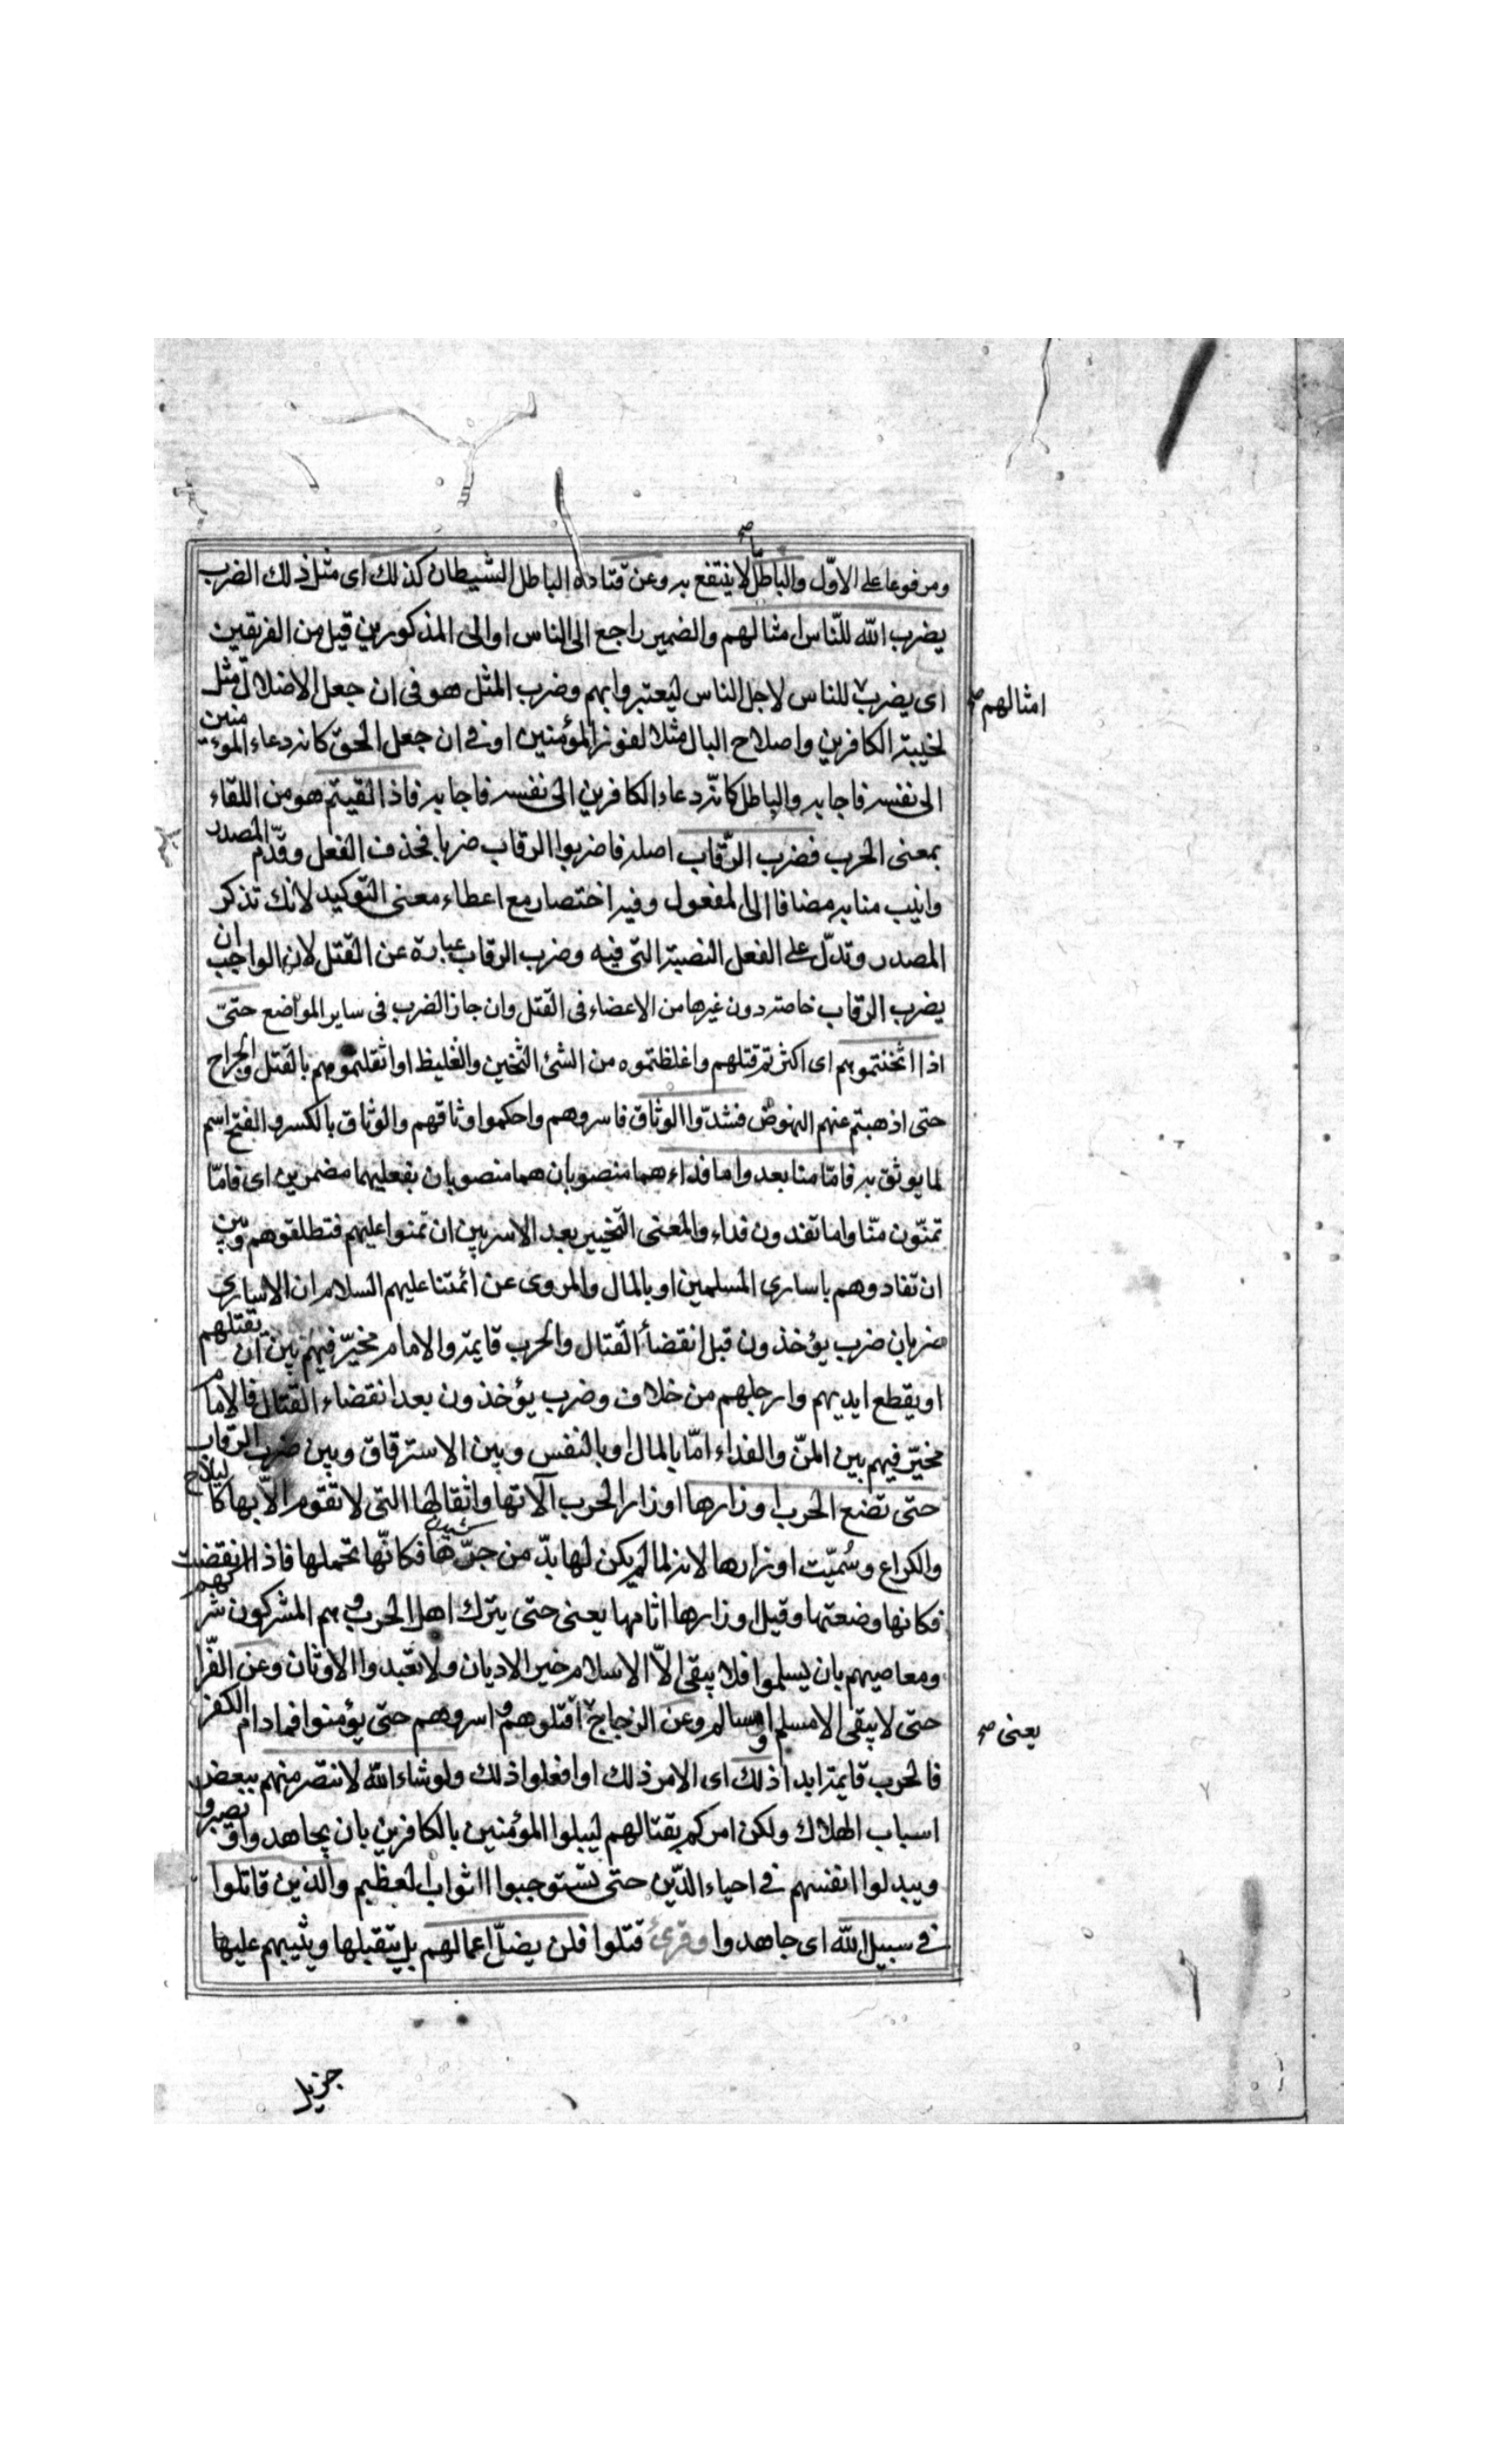 ومرفوعا على الاوّل والباطل ما لا ينتفع به وعن قتاده الباطل الشيطان كذلك اى مثل ذلك الضرب
يضرب الله للنّاس امثالهم والضمير راجع الى الناس او الى المذكورين قبل من الفريقين
اى يضرب للناس لاجل الناس ليعتبروا بهم وضرب المثل هو فى ان جعل الاضلال مثل
امثالهم صح
لخيبة الكافرين واصلاح البال مثلا لفوز المؤمنين او فى ان جعل الحق كانه دعاء المؤمنين
الى نفسه فاجابه والباطل كانّه دعاء الكافرين الى نفسه فاجابه فاذا لقيتم هو من اللقاء
بمعنى الحرب فضرب الرّقاب اصله فاضربوا الرقاب ضربا فحذف الفعل وقدّم المصدر
وانيب منابه مضافا الى المفعول وفيه اختصار مع اعطاء معنى التّوكيد لانك تذكر
المصدر وتدلّ على الفعل النصبة التى فيه وضرب الرقاب عبارة عن القتل لان الواجب ان
يضرب الرقاب خاصة دون غيرها من الاعضاء فى القتل وان جاز الضرب فى ساير المواضع حتىّ
اذا اثخنتموهم اى اكثرتم قتلهم واغلظتموه من الشئ الثخين والغليظ او اثقلتموهم بالقتل والجراح
حتى اذهبتم عنهم النهوض فشدّوا الوثاق فاسروهم واحكموا وثاقهم والوثاق بالكسر والفتح اسم
لما يوثق به فامّا منا بعد واما فداء هما منصوبان هما منصوبان بفعليهما مضمرين اى فامّا
تمنّون منّا واما تفدون فداء والمعنى التخيير بعد الاسر بين ان تمنوا عليهم فتطلقوهم وبين
ان تفادوهم باسارى المسلمين او بالمال والمروى عن ائمتنا عليهم السلام ان الاسارى
ضربان ضرب يؤخذون قبل انقضأ القتال والحرب قايمة والامام مخيّر فيهم بين ان يقتلهم
او يقطع ايديهم وارجلهم من خلاف وضرب يؤخذون بعد انقضاء القتال فالامام
مخيّر فيهم بين المنّ والفداء امّا بالمال او بالنفس وبين الاسترقاق وبين ضرب الرقاب
حتى تضع الحرب اوزارها اوزار الحرب آلاتها واثقالها التى لا تقوم الاّ بها كالسلاح
والكراع وسُميّت اوزارها لانه لما لم يكن لها بدّ من جرّها فكانّها تحملها فاذا انقضت
فكانها وضعتها وقيل اوزارها اثامها يعنى حتى يترك اهل الحرب وهم المشركون شركهم
ومعاصيهم بان يسلموا فلا يبقى الاّ الاسلام خير الاديان ولا تعبدوا الاوثان وعن الفّرا
حتى لا يبقى الا مسلم او مسالم وعن الزجاج اقتلوهم واسروهم حتى يؤمنوا فما دام الكفر
يعنى صح
فالحرب قايمة ابدا ذلك اى الامر ذلك او افعلوا ذلك ولو شاء الله لانتصر منهم ببعض
اسباب الهلاك ولكن امركم بقتالهم ليبلوا المؤمنين بالكافرين بان يجاهدوا ويصبروا
ويبدلوا انفسهم فى احياء الدّين حتى تستوجبوا الثواب العظيم والذين قاتلوا
فى سبيل الله اى جاهدوا وقرئ قتلوا فلن يضلّ اعمالهم بل يتقبلها ويثيبهم عليها
جزيل